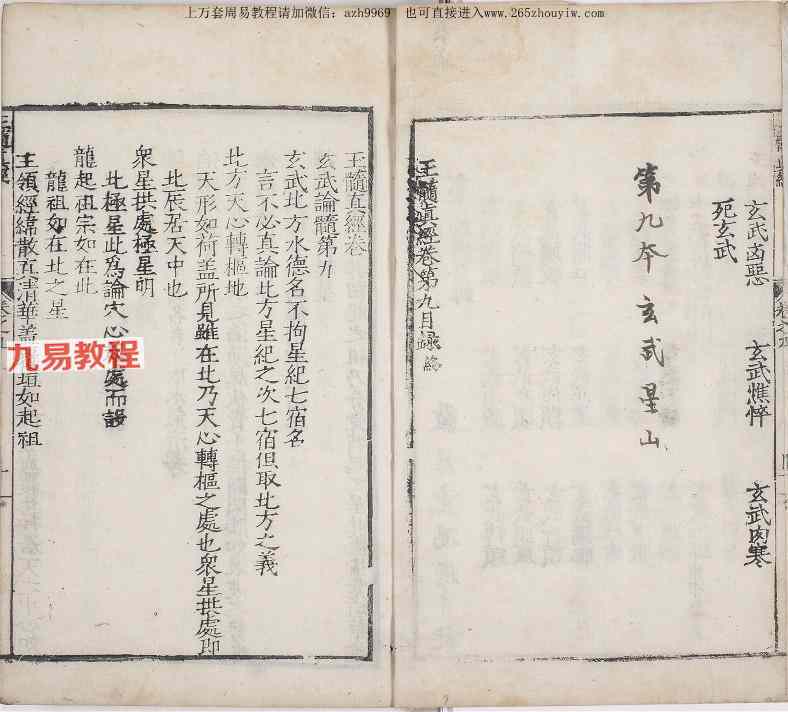 上万套周易教程请加微信：azh9969 也可直接进入www.265zhouyiw.com
玄武凶惡 玄武憔悴 玄武肉寒
死玄武
第九本 玄武星山
玉髓真經卷第九目録終
玉髓真經卷
玄武論髓第九
玄武北方水德名不拘星紀七宿名
言不必真論北方星紀之次七宿但取北方之義
北方天心轉樞地
天形如荷盖所見雖在北乃天心轉樞之處也衆星拱處即
北辰居天中也
衆星拱處極星明
北極星此爲論穴心 處而設
龍起祖宗如在此
龍祖如在北之星
主領經緯散五
華盖 垣如起祖
九易教程